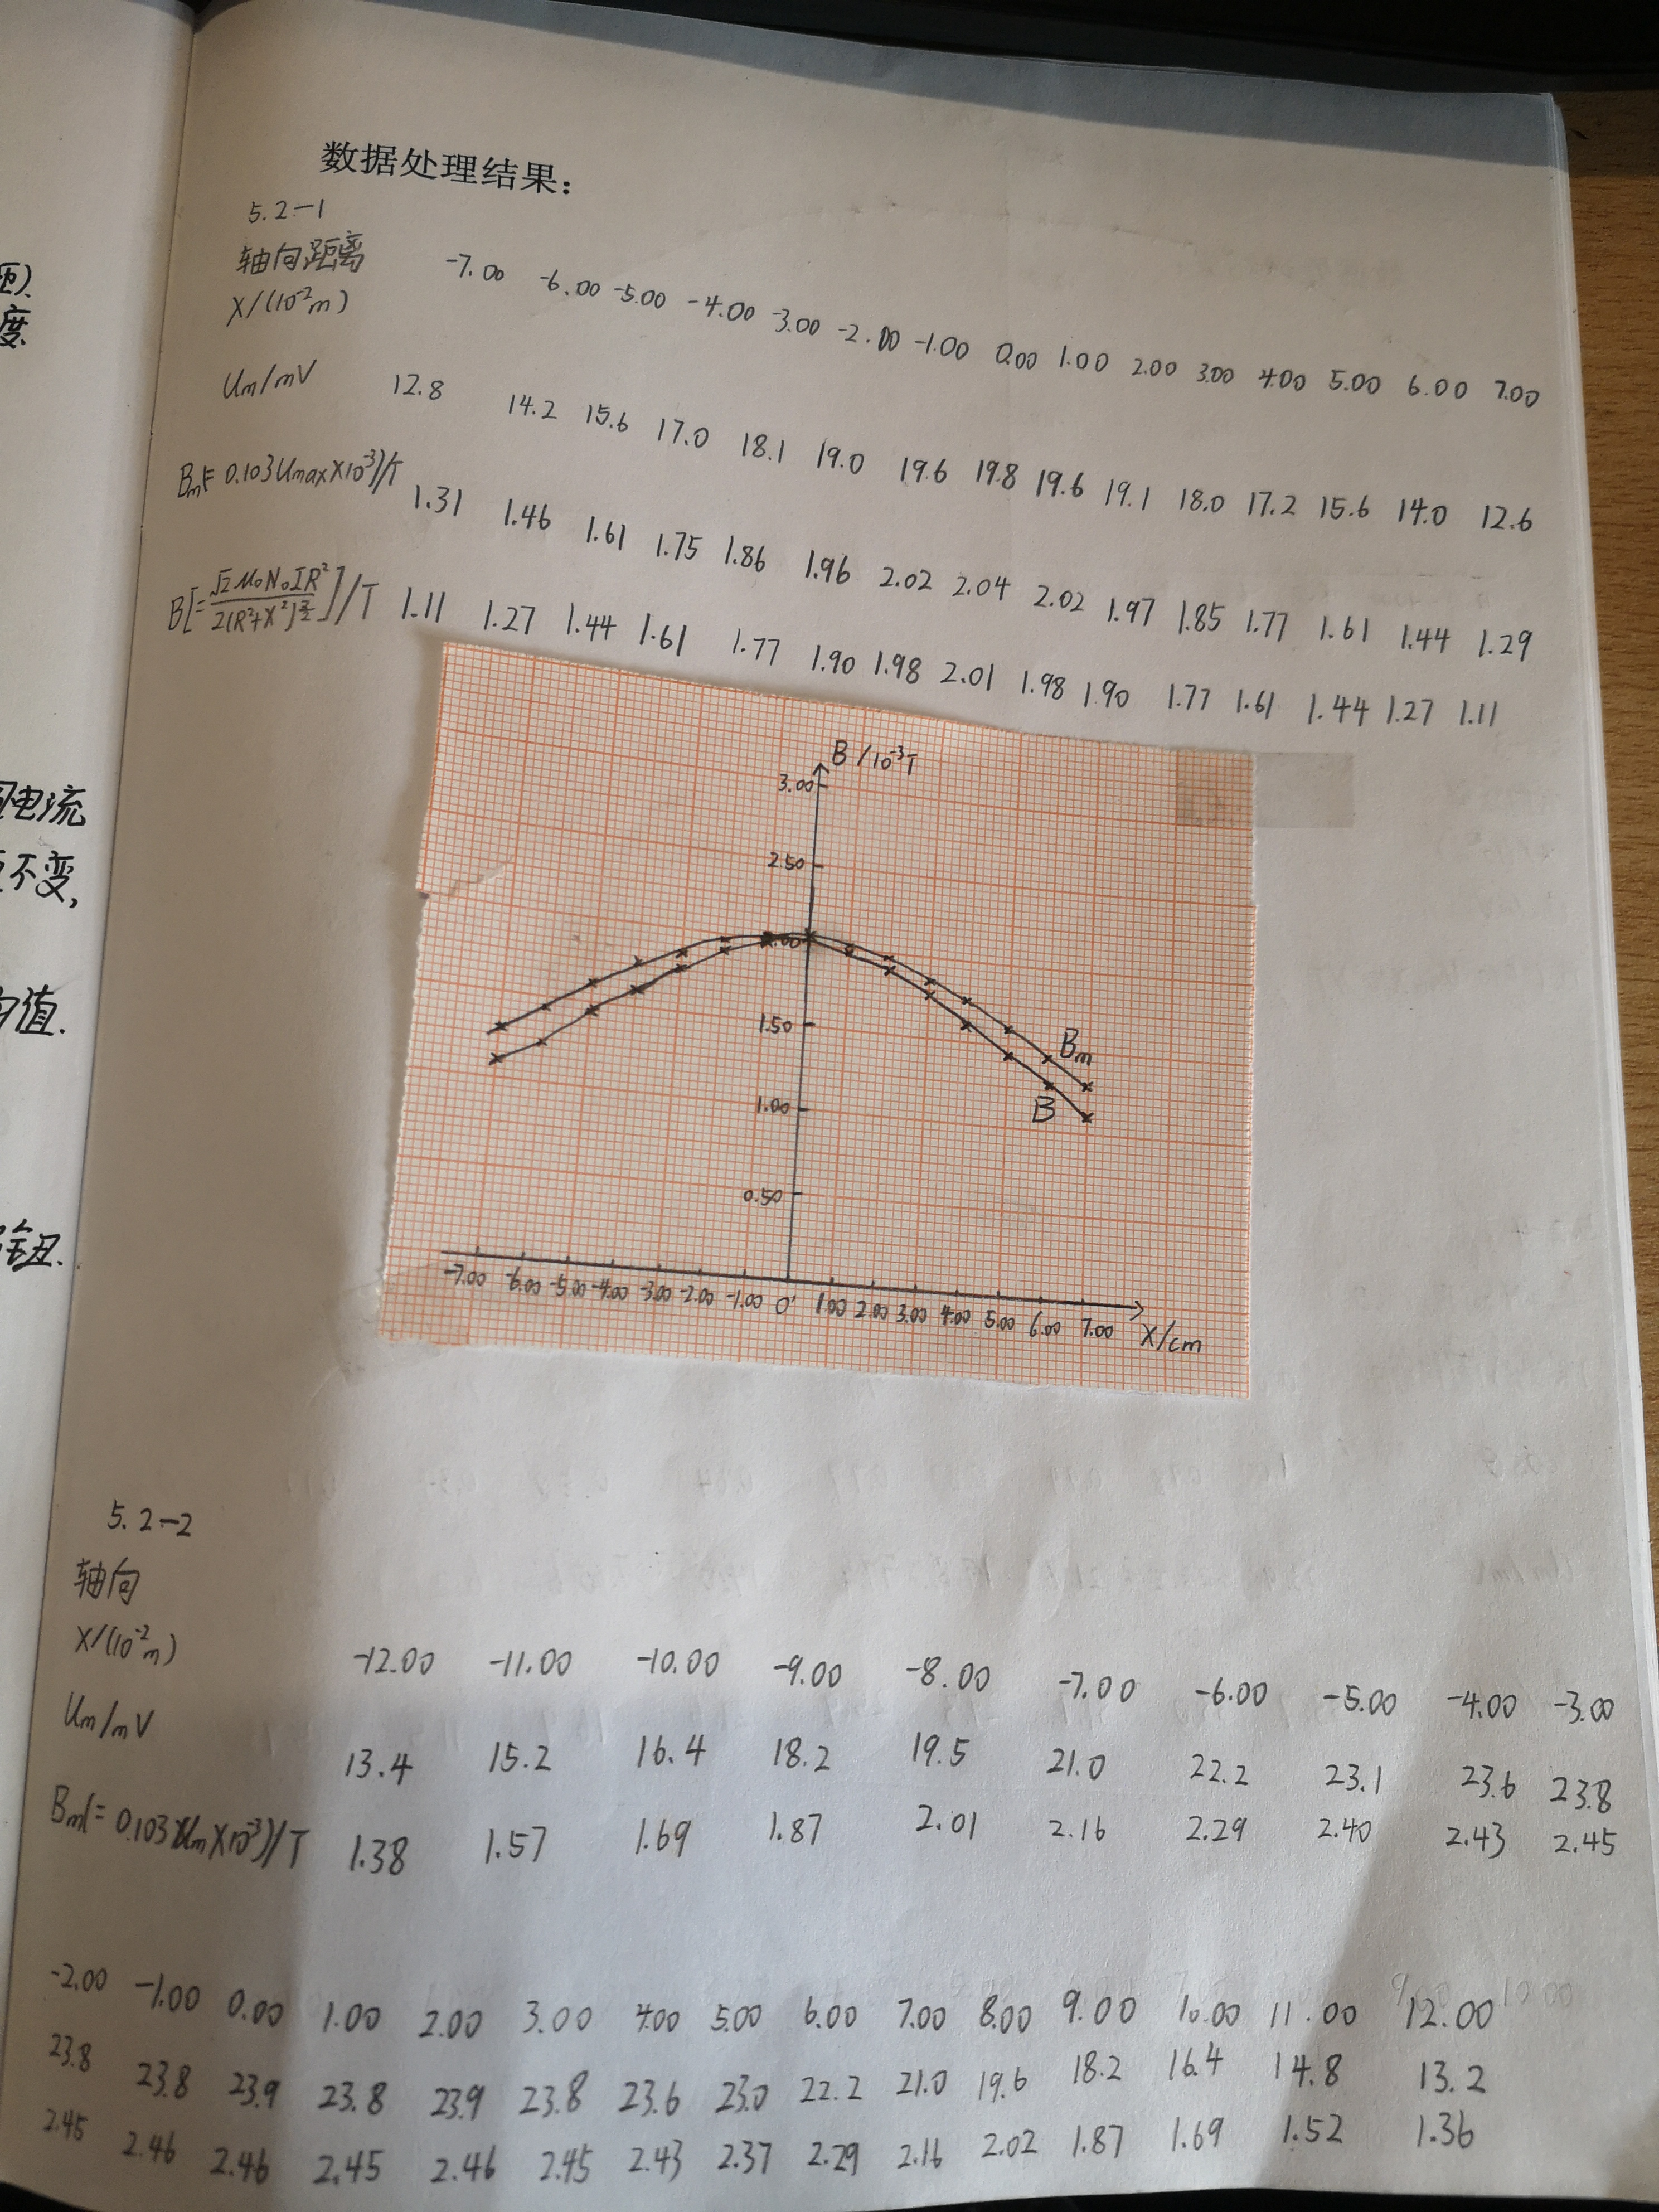 数据处理结果：
5.2-1
轴向距离
X/(10⁻²m) -7.00 -6.00 -5.00 -4.00 -3.00 -2.00 -1.00 0.00 1.00 2.00 3.00 4.00 5.00 6.00 7.00
Um/mV 12.8 14.2 15.6 17.0 18.1 19.0 19.6 19.8 19.6 19.1 18.0 17.2 15.6 14.0 12.6
Bm(=0.103Umax×10⁻³)/T 1.31 1.46 1.61 1.75 1.86 1.96 2.02 2.04 2.02 1.97 1.85 1.77 1.61 1.44 1.29
B[=√2μ₀N₀IR²/2(R²+X²)^(3/2)]/T 1.11 1.27 1.44 1.61 1.77 1.90 1.98 2.01 1.98 1.90 1.77 1.61 1.44 1.27 1.11
B/10⁻³T
3.00
2.50
1.50
Bm
B
1.00
0.50
-7.00 -6.00 -5.00 -4.00 -3.00 -2.00 -1.00 0 1.00 2.00 3.00 4.00 5.00 6.00 7.00 X/cm
5.2-2
轴向
X/(10⁻²m) -12.00 -11.00 -10.00 -9.00 -8.00 -7.00 -6.00 -5.00 -4.00 -3.00
Um/mV 13.4 15.2 16.4 18.2 19.5 21.0 22.2 23.1 23.6 23.8
Bm(=0.103×Um×10⁻³)/T 1.38 1.57 1.69 1.87 2.01 2.16 2.29 2.40 2.43 2.45
-2.00 -1.00 0.00 1.00 2.00 3.00 4.00 5.00 6.00 7.00 8.00 9.00 10.00 11.00 12.00
23.8 23.8 23.9 23.8 23.9 23.8 23.6 23.0 22.2 21.0 19.6 18.2 16.4 14.8 13.2
2.45 2.46 2.46 2.45 2.46 2.45 2.43 2.37 2.29 2.16 2.02 1.87 1.69 1.52 1.36
度
电流
不变,
值.
钮.